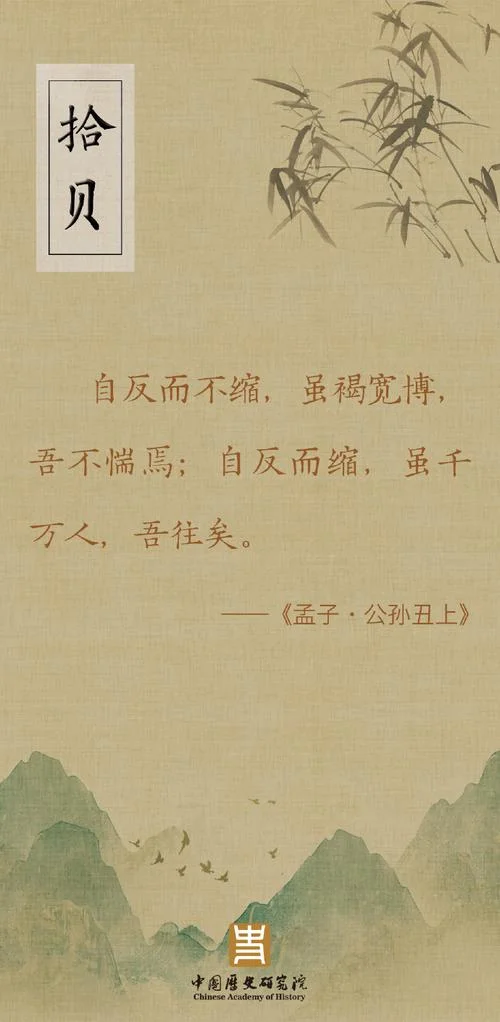 拾贝
自反而不缩，虽褐宽博，
吾不惴焉；自反而缩，虽千
万人，吾往矣。
——《孟子·公孙丑上》
中国歷史研究院
Chinese Academy of History